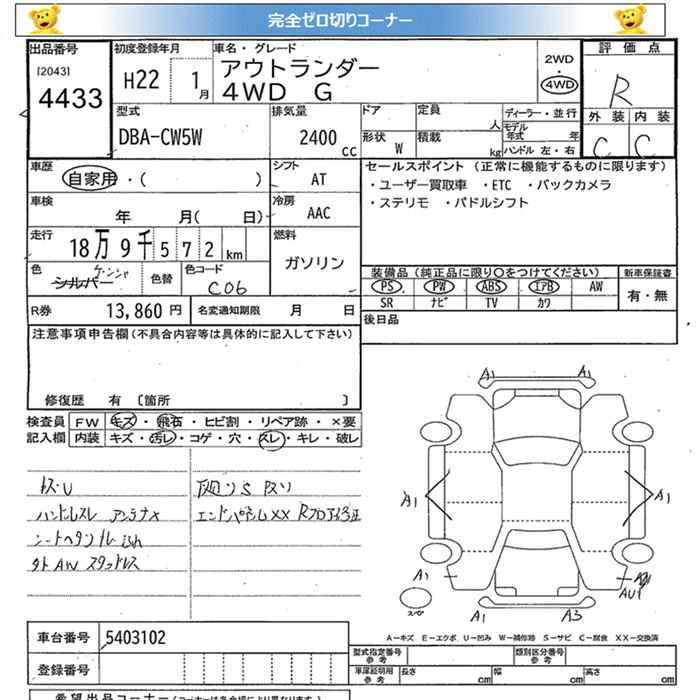 完全ゼロ切りコーナー
出品番号
[2043]
4433
初度登録年月
H22 1月
車名・グレード
アウトランダー
4WD G
2WD
4WD
評価点
R
外装 内装
C C
型式
DBA-CW5W
排気量
2400 cc
ドア
形状 W
定員 人
積載 kg
ディーラー・並行
モデル年式 年
ハンドル 左・右
車歴
自家用・( )
シフト
AT
セールスポイント (正常に機能するものに限ります)
・ユーザー買取車 ・ETC ・バックカメラ
・ステリモ ・パドルシフト
車検
年 月( 日)
冷房
AAC
走行
18万9千572km
燃料
ガソリン
色
シルバー
色替
色コード
C06
装備品 (純正品に限り〇をつけてください)
PS PW ABS エアB AW
SR ナビ TV カワ
新車保証書
有・無
R券 13,860 円
名変通知期限 月 日
後日品
注意事項申告欄 (不具合内容等は具体的に記入して下さい)
修復歴 有 〔箇所 〕
検査員記入欄
FW キズ・飛石・ヒビ割・リペア跡・×要
内装 キズ・汚レ・コゲ・穴・スレ・キレ・破レ
ハンドルスレ アンテナX
外AW スタッドレス
A1 A1
A1 A1
A1
A1 A3
スペア
A-キズ E-エクボ U-凹み W-補修跡 S-サビ C-腐食 XX-交換済
車台番号 5403102
登録番号
型式指定番号 参考
類別区分番号 参考
車庫証明用 参考
長さ cm
幅 cm
高さ cm
希望出品コーナー